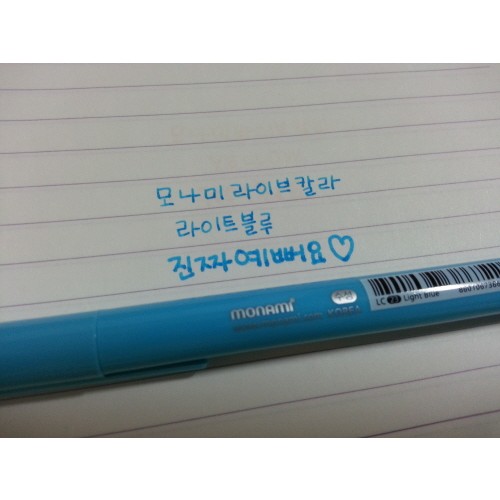 모나미 라이브칼라
라이트블루
진짜 예뻐요♡
monami
KOREA
LC 23 Light Blue